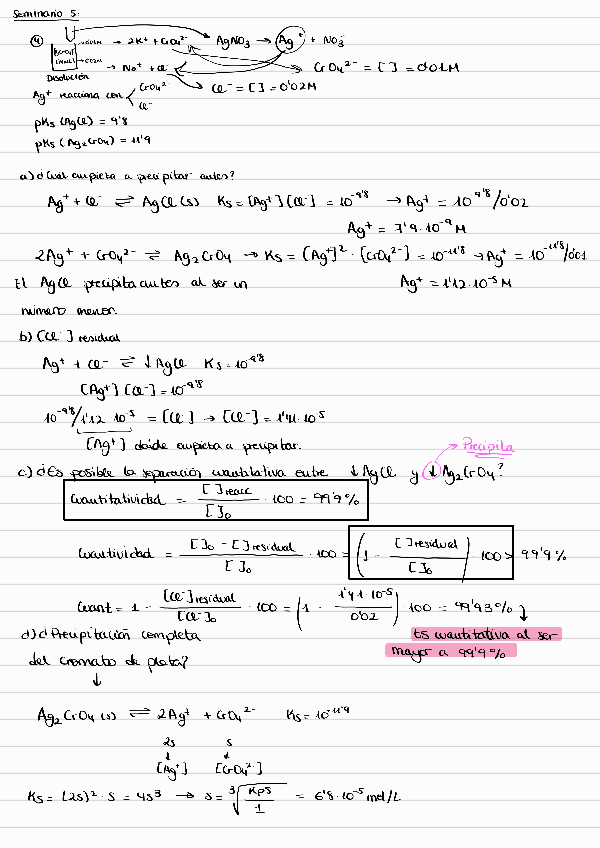 Seminario 5:
④ K₂CrO₄ 0'01M → 2K⁺ + CrO₄²⁻ AgNO₃ → Ag⁺ + NO₃⁻
→ Na⁺ + Cl⁻ CrO₄²⁻ = [ ] = 0'01M
Disolución
Ag⁺ reacciona con CrO₄²⁻ Cl⁻ Cl⁻ = [ ] = 0'02M
pKs (AgCl) = 9'8
pKs (Ag₂CrO₄) = 11'9
a) ¿Cuál empieza a precipitar antes?
Ag⁺ + Cl⁻ ⇌ AgCl (s) Ks = [Ag⁺] [Cl⁻] = 10⁻⁹'⁸ → Ag⁺ = 10⁻⁹'⁸/0'02
Ag⁺ = 7'9·10⁻⁹ M
2Ag⁺ + CrO₄²⁻ ⇌ Ag₂CrO₄ → Ks = [Ag⁺]² · [CrO₄²⁻] = 10⁻¹¹'⁸ → Ag⁺ = 10⁻¹¹'⁸/0'01
El AgCl precipita antes al ser un Ag⁺ = 1'12·10⁻⁵ M
número menor.
b) [Cl⁻] residual
Ag⁺ + Cl⁻ ⇌ ↓AgCl Ks = 10⁻⁹'⁸
[Ag⁺] [Cl⁻] = 10⁻⁹'⁸
10⁻⁹'⁸/1'12·10⁻⁵ = [Cl⁻] → [Cl⁻] = 1'41·10⁻⁵
[Ag⁺] donde empieza a precipitar.
Precipita
c) ¿Es posible la separación cuantitativa entre ↓AgCl y ↓Ag₂CrO₄?
Cuantitatividad = [ ]reacc / [ ]₀ · 100 = 99'9%
Cuantividad = [ ]₀ - [ ]residual / [ ]₀ · 100 = (1 - [ ]residual / [ ]₀) · 100 > 99'9%
Cuant = 1 - [Cl⁻]residual / [Cl⁻]₀ · 100 = (1 - 1'41·10⁻⁵ / 0'02) 100 = 99'93%
d) ¿Precipitación completa Es cuantitativa al ser
del cromato de plata? mayor a 99'9%
↓
Ag₂CrO₄ (s) ⇌ 2Ag⁺ + CrO₄²⁻ Ks = 10⁻¹¹'⁹
2s s
↓ ↓
[Ag⁺] [CrO₄²⁻]
Ks = (2s)² · s = 4s³ → s = ³√(Kps / 1) = 6'8·10⁻⁵ mol/L